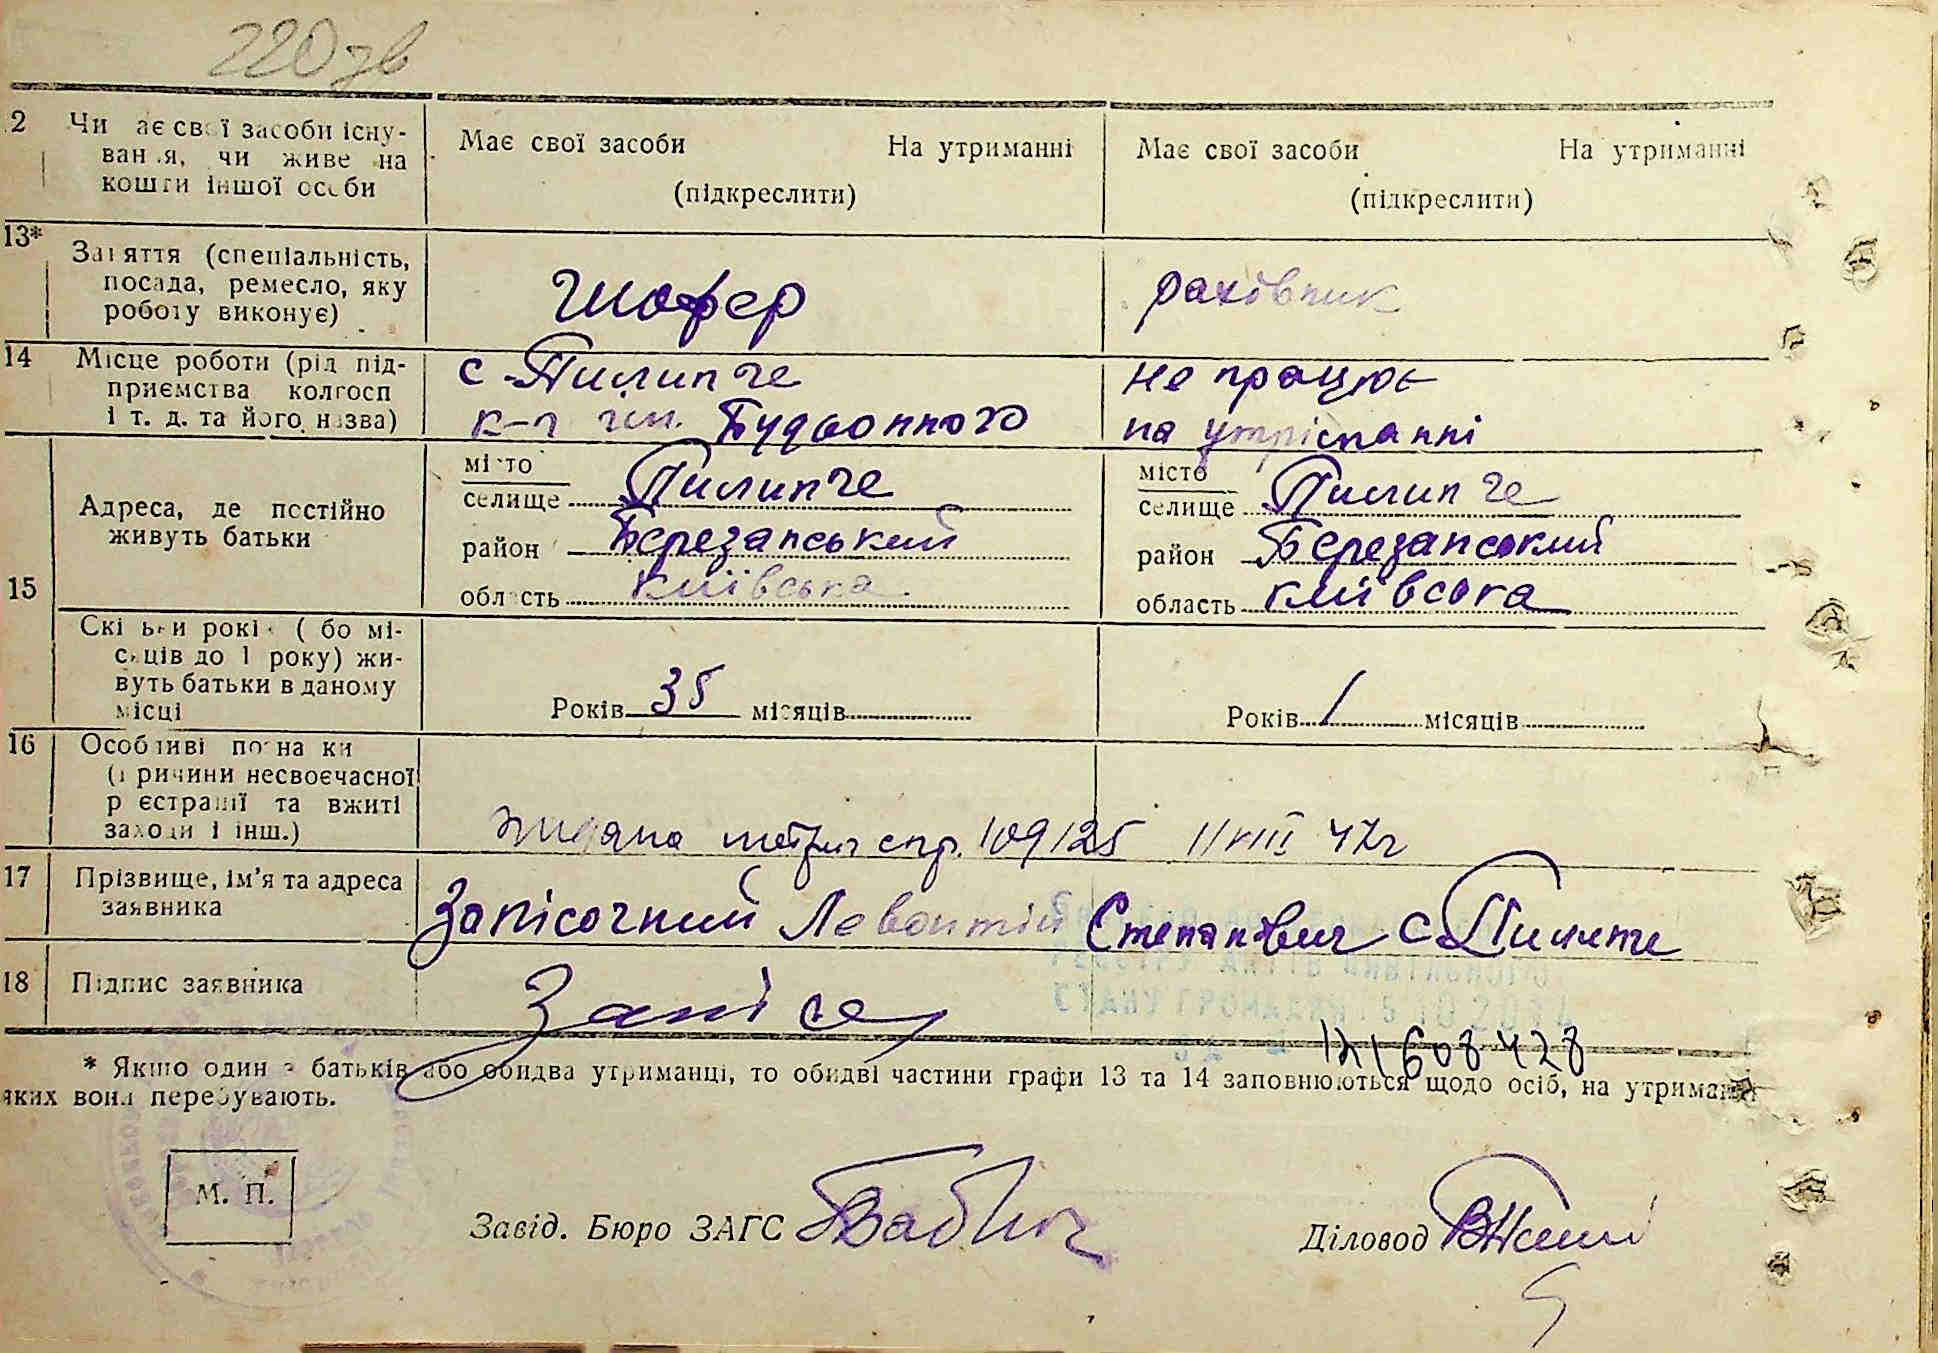 220 зв
2 Чи ає свої засоби існу- Має свої засоби На утриманні Має свої засоби На утриманні
ван я, чи живе на
кошти іншої особи (підкреслити) (підкреслити)
13* Заняття (спеціальність,
посада, ремесло, яку шофер раховник
роботу виконує)
14 Місце роботи (рід під- с. Пилипче не працює
приємства колгосп
і т. д. та його назва) к-п ім. Будьонного на утріманні
місто місто
селище Пилипче селище Пилипче
Адреса, де постійно
живуть батьки район Березанський район Березанский
область київська область київська
15
Скі ьки рокі ( бо мі-
сяців до 1 року) жи-
вуть батьки в даному
місці Років 35 місяців Років 1 місяців
16 Особливі позна ки
(причини несвоєчасної
р єстрації та вжиті
заходи і інш.) спр. 109125 11 VIII 47г
17 Прізвище, ім'я та адреса
заявника Запісочний Левонтій Степанович с. Пилипче
РЕЄСТРУ АКТІВ ЦИВІЛЬНОГО
СТАНУ ГРОМАДЯН
18 Підпис заявника Запісо
141608428
* Якщо один з батьків або обидва утриманці, то обидві частини графи 13 та 14 заповнюються щодо осіб, на утриманні
яких вони перебувають.
М. П.
Завід. Бюро ЗАГС Діловод